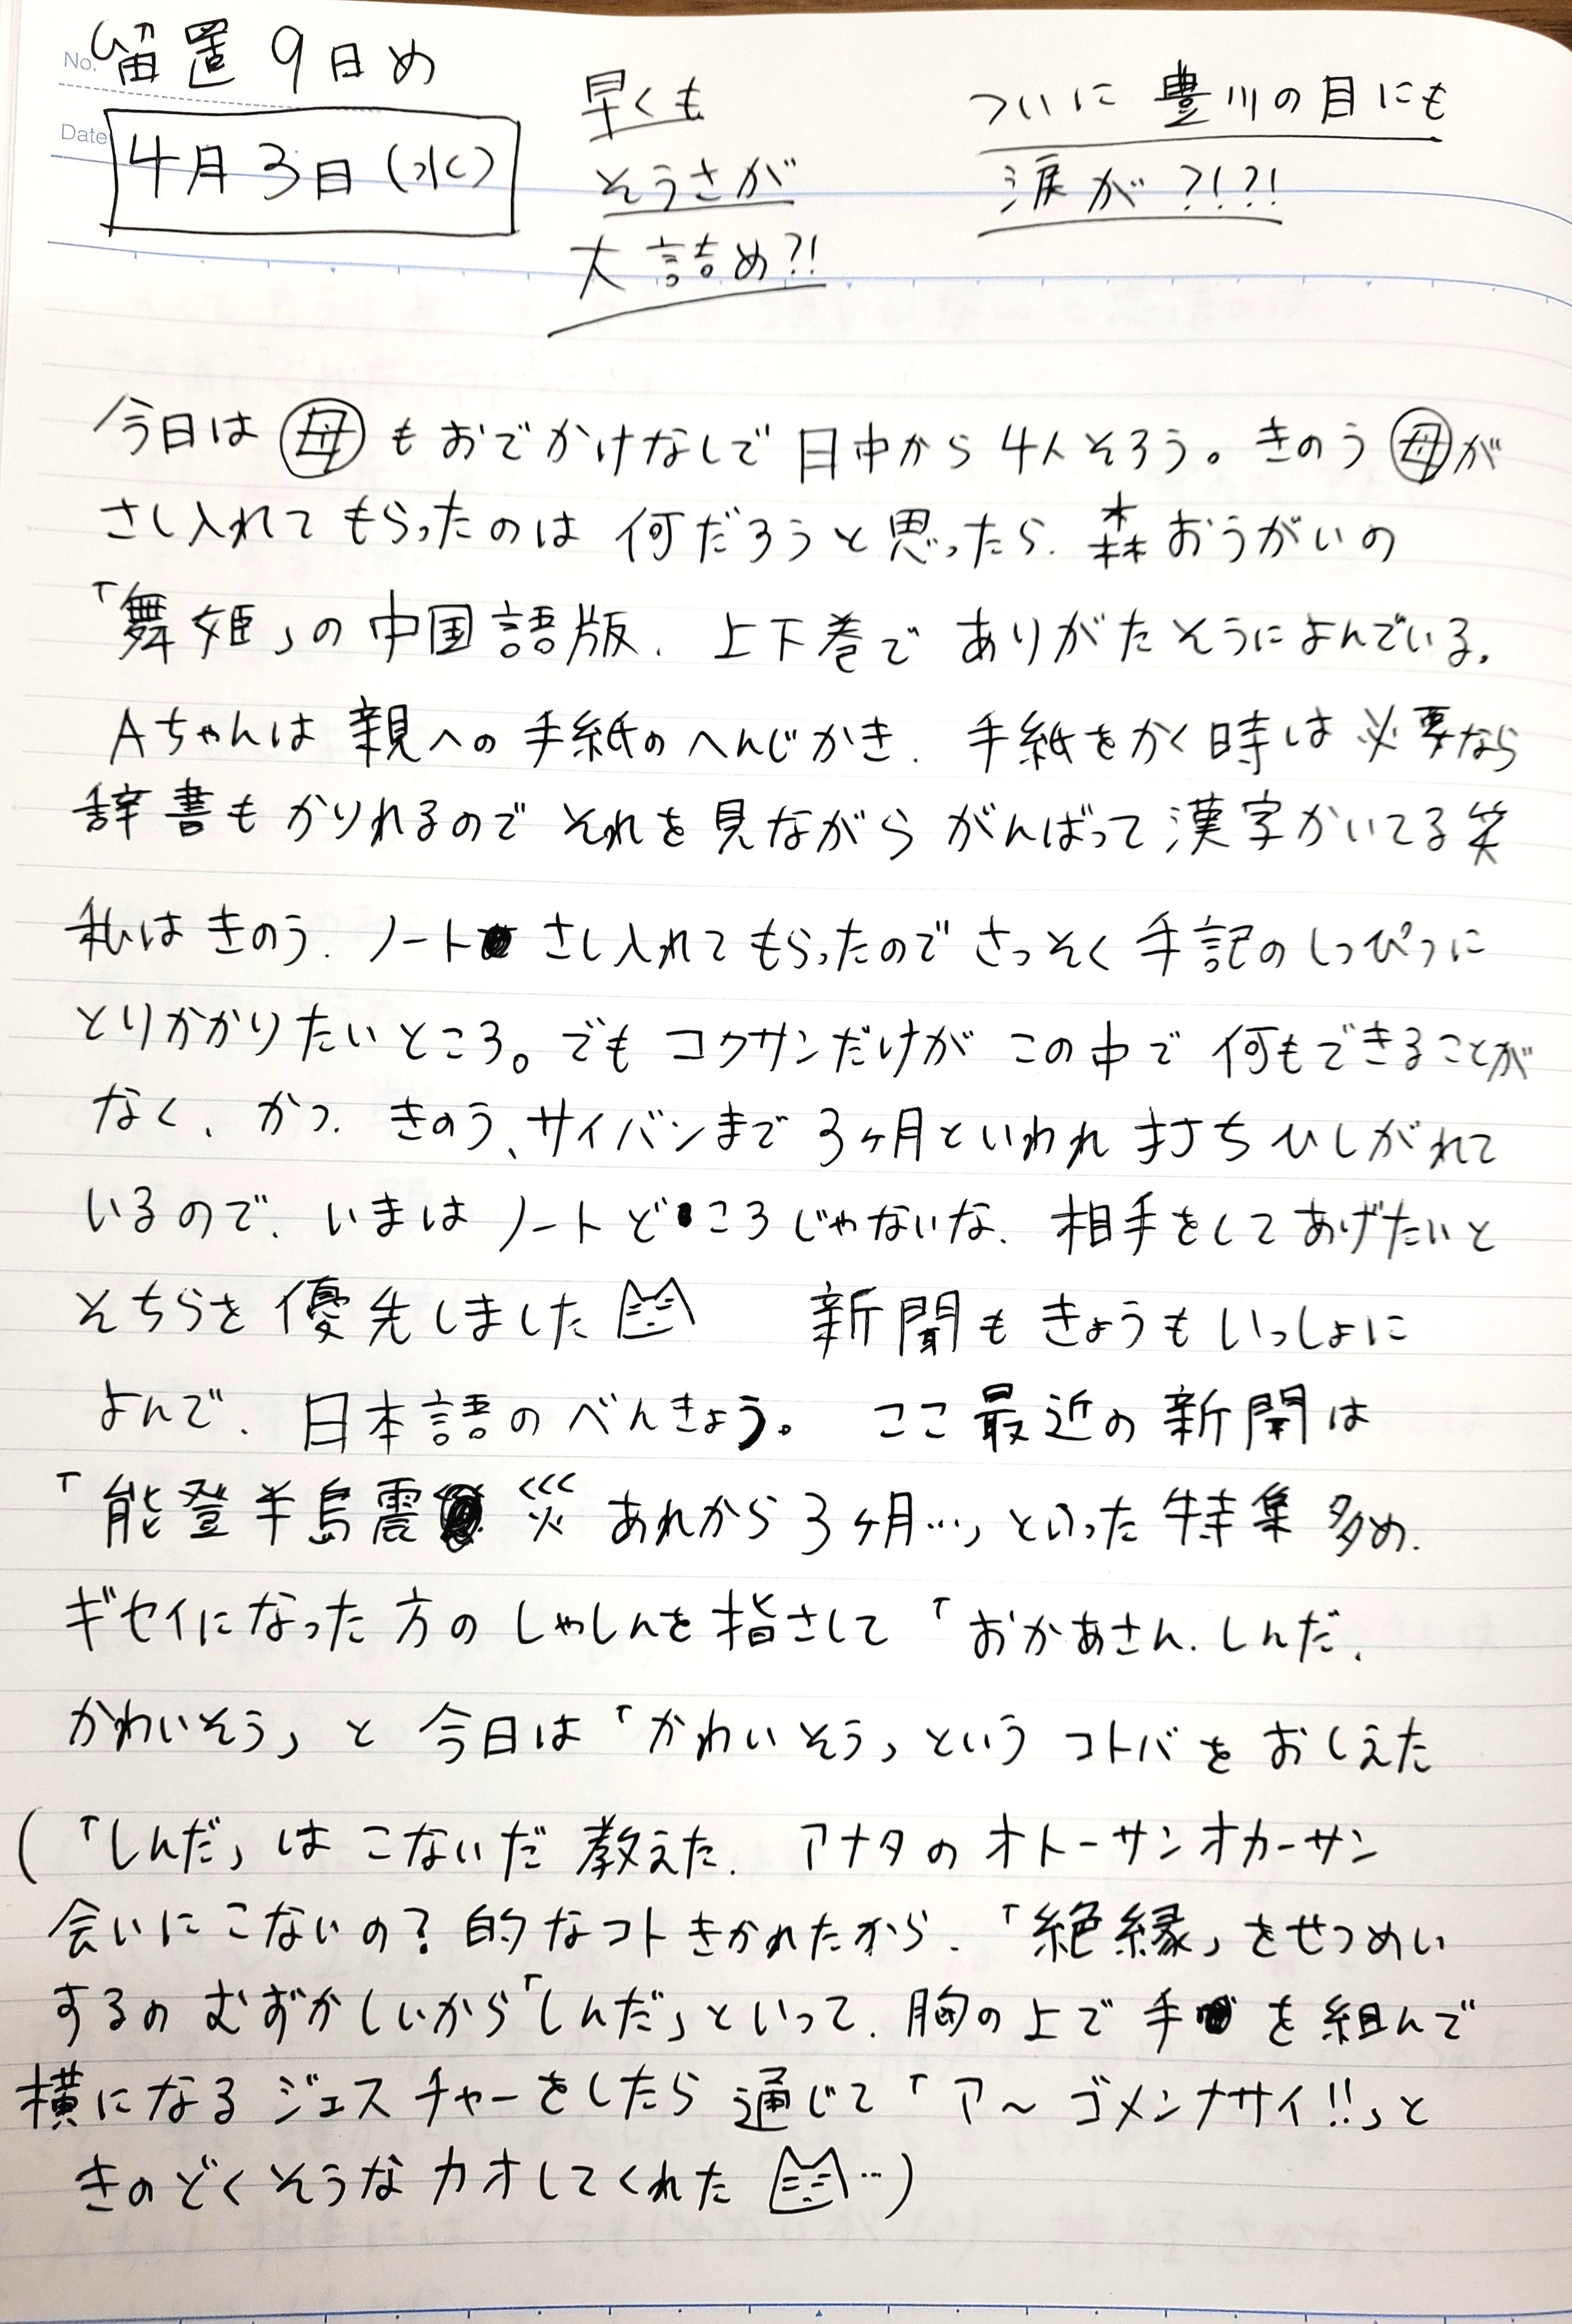 No.
留置9日め
Date
4月3日(水)
早くも
そうさが
大詰め?!
ついに豊川の目にも
涙が?!?!
今日は母もおでかけなしで日中から4人そろう。きのう母が
さし入れてもらったのは何だろうと思ったら、森おうがいの
「舞姫」の中国語版、上下巻でありがたそうによんでいる。
Aちゃんは親への手紙のへんじかき、手紙をかく時は必要なら
辞書もかりれるのでそれを見ながらがんばって漢字かいてる笑
私はきのう、ノートさし入れてもらったのでさっそく手記のしっぴつに
とりかかりたいところ。でもコクサンだけがこの中で何もできることが
なく、かつ、きのう、サイバンまで3ヶ月といわれ打ちひしがれて
いるので、いまはノートどころじゃないな、相手をしてあげたいと
そちらを優先しました 新聞もきょうもいっしょに
よんで、日本語のべんきょう。ここ最近の新聞は
「能登半島震災あれから3ヶ月…」といった特集多め、
ギセイになった方のしゃしんを指さして「おかあさん、しんだ、
かわいそう」と今日は「かわいそう」というコトバをおしえた
(「しんだ」はこないだ教えた、アナタのオトーサンオカーサン
会いにこないの?的なコトきかれたから、「絶縁」をせつめい
するのむずかしいから「しんだ」といって、胸の上で手を組んで
横になるジェスチャーをしたら通じて「ア〜ゴメンナサイ!!」と
きのどくそうなカオしてくれた…)